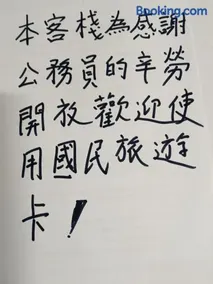 Booking.com
本客棧為感謝
公務員的辛勞
開放歡迎使
用國民旅遊
卡！